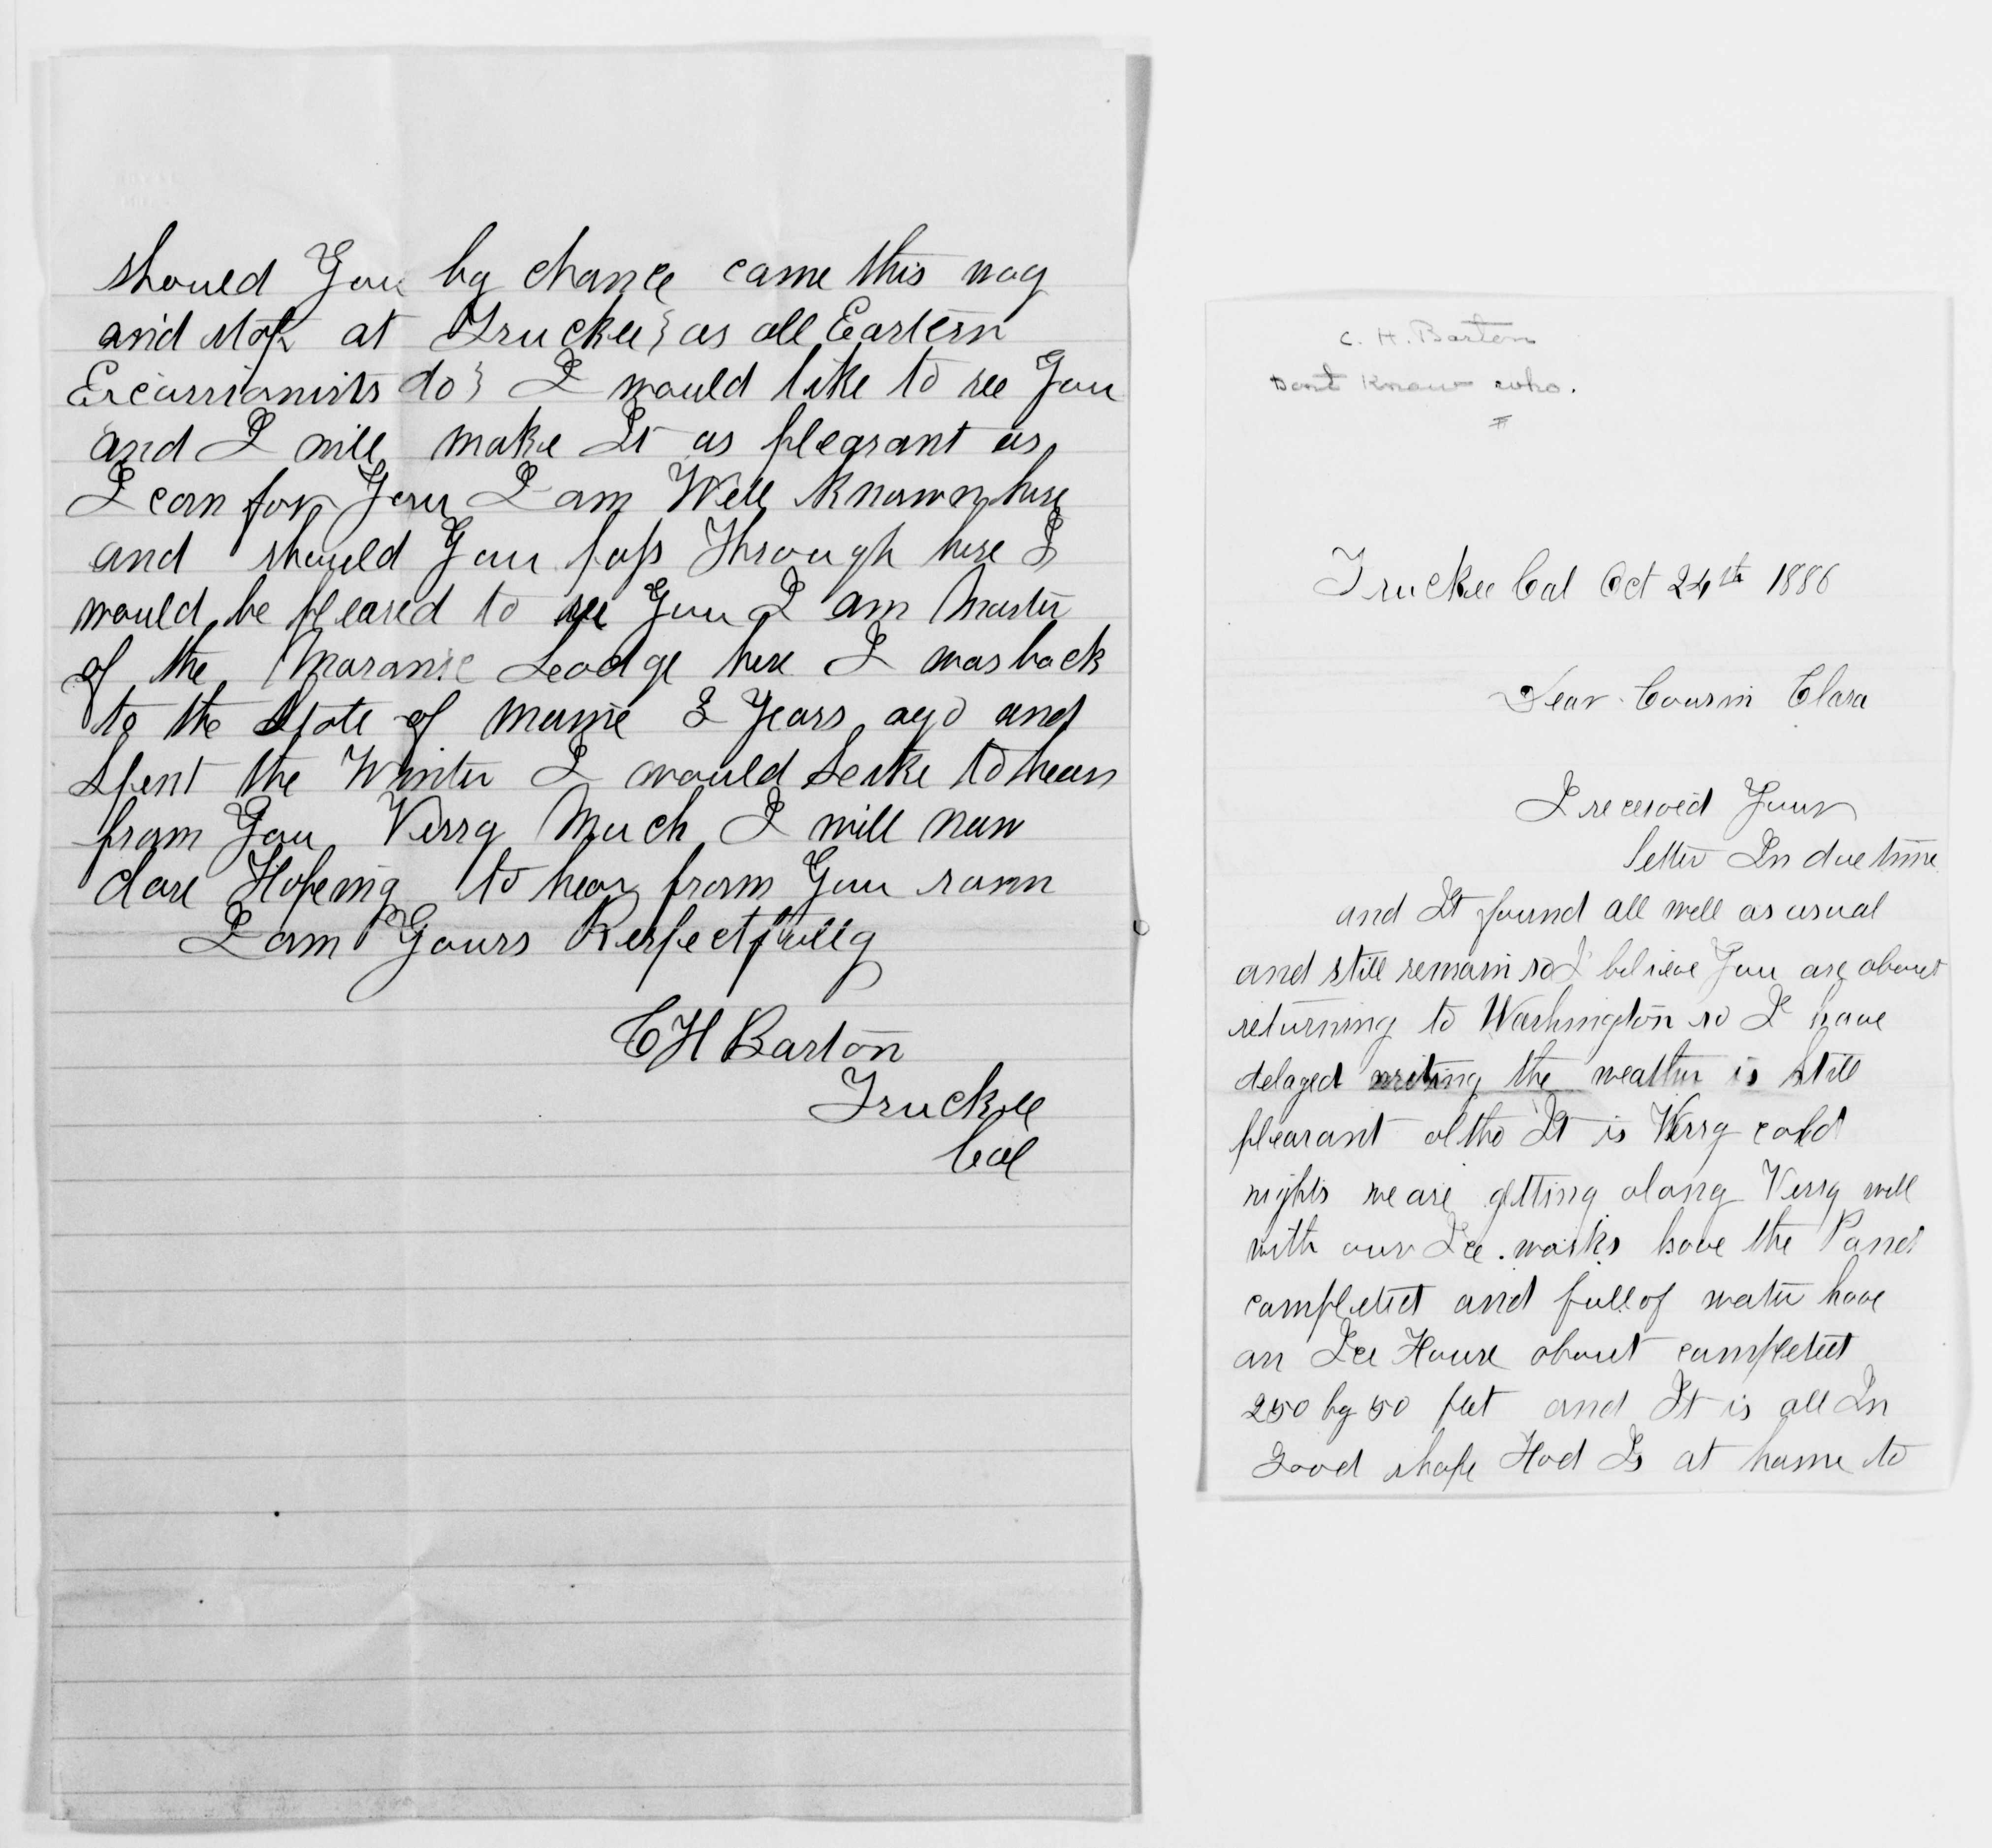 should You by chance come this way
and stop at Truckee } as all Eastern
Excursionists do } I would like to see You
and I will make It as pleasant as
I can for You I am Well Known here
and should You pass Through here I
would be pleased to see You I am Master
of the Masonic Leodge here I was back
to the State of Maine 3 Years ago and
Spent the Winter I would Leike to hear
from You Verry Much I will now
close Hopeing to hear from You soon
I am Yours Respectfully
C H Barton
Truckee
Cal
C. H. Barton
Dont Know who.
Truckee Cal Oct 24th 1886
Dear Cousin Clara
I received Your
letter In due time
and It found all well as usual
and still remain so I believe You are about
returning to Washington so I have
delayed writing the weather is still
pleasant altho It is Verry cold
nights we are getting along Verry well
with our Ice works have the Pond
completed and full of water have
an Ice House about completed
250 by 50 feet and It is all In
Good shape Had Is at home to